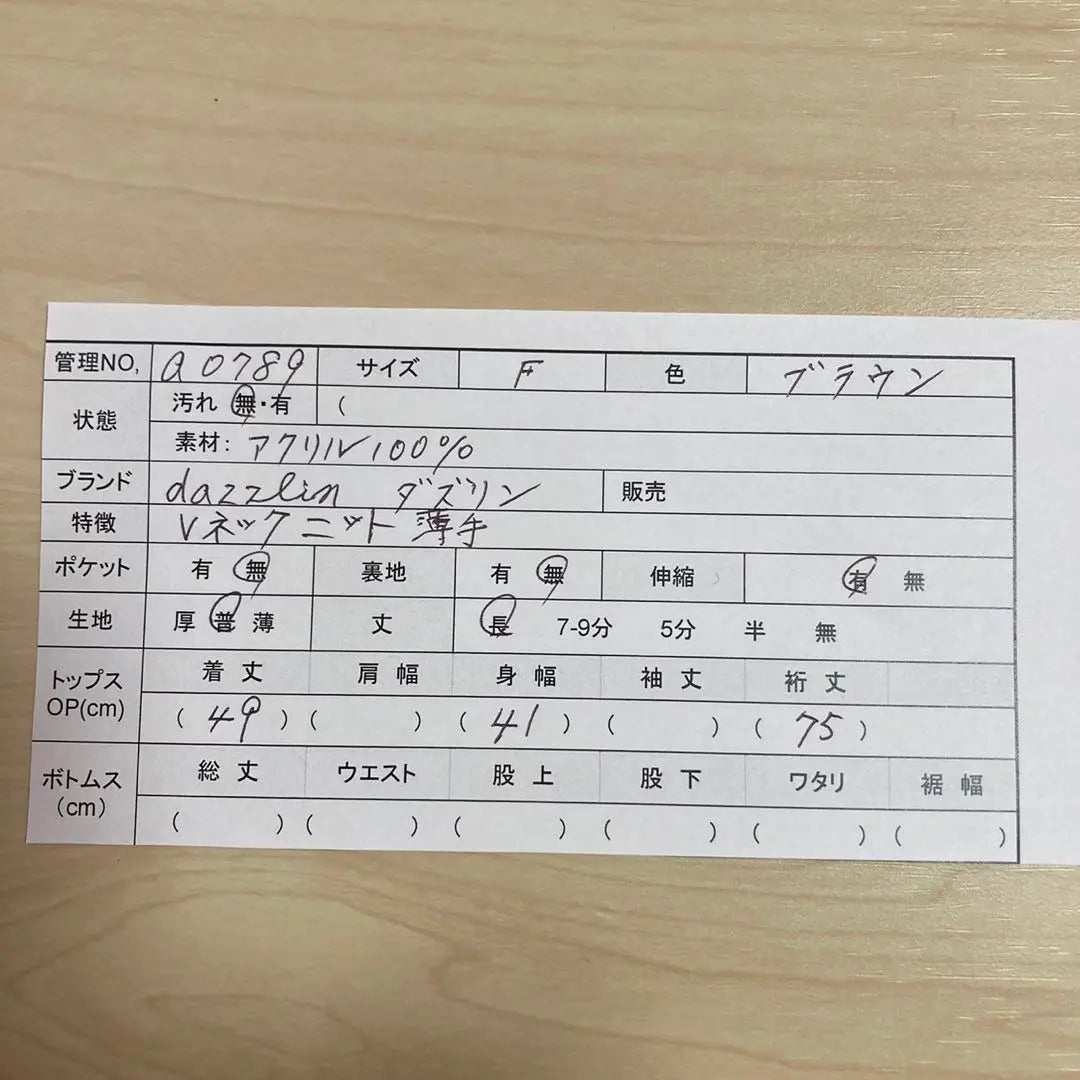 管理NO, a0789 サイズ F 色 ブラウン
状態 汚れ 無・有 (
素材: アクリル100%
ブランド dazzlin ダズリン 販売
特徴 Vネックニット薄手
ポケット 有 無 裏地 有 無 伸縮 有 無
生地 厚 普 薄 丈 長 7-9分 5分 半 無
トップス OP(cm) 着丈 肩幅 身幅 袖丈 裄丈
(49) ( ) (41) ( ) (75)
ボトムス (cm) 総丈 ウエスト 股上 股下 ワタリ 裾幅
( ) ( ) ( ) ( ) ( ) ( )